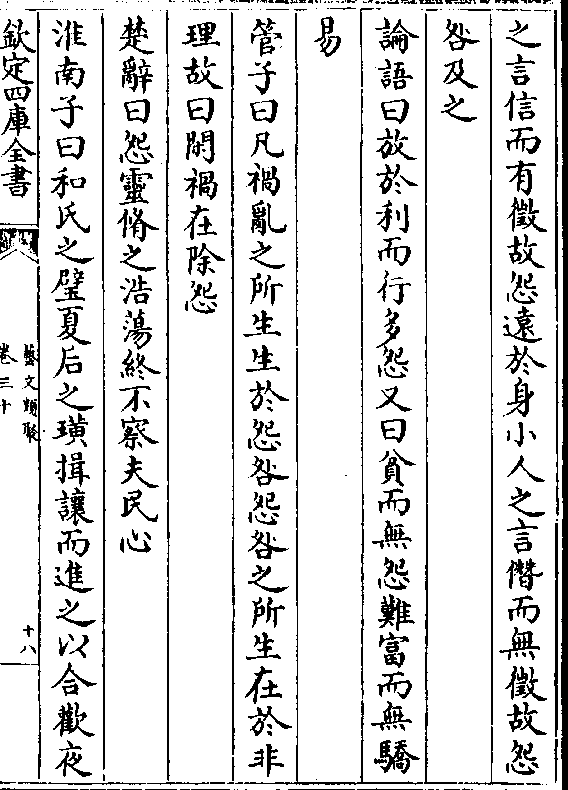 之言信而有徵故怨遠於身小人之言僭而無徵故怨
咎及之
論語曰放於利而行多怨又曰貧而無怨難富而無驕
易
管子曰凡禍亂之所生生於怨咎怨咎之所生在於非
理故曰閉禍在除怨
楚辭曰怨靈脩之浩蕩終不察夫民心
淮南子曰和氏之璧夏后之璜揖讓而進之以合歡夜
欽定四庫全書
藝文類聚
卷三十
十八